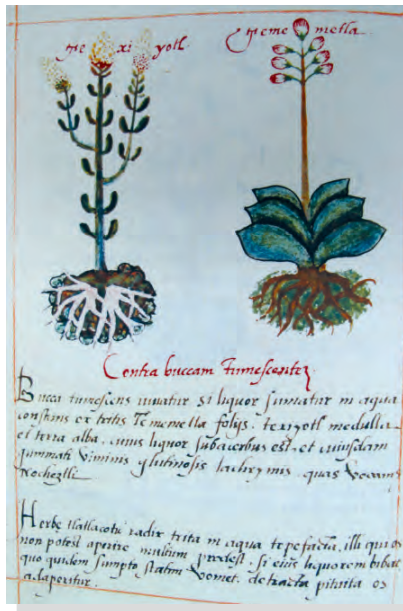 te xi yotl
teme metla
Contra buccam tumescentẽ
Bucca tumescens iuuatur si liquor sumatur in aqua
constans ex tritis Temetla folijs, texiyotl medulla
et terra alba, cuius liquor subacerbus est, et cuiusdam
viminis glutinosis lachrymis quas Vocant
Nocheztli
Herbe tlatlacotic radix trita in aqua tepefacta, illi qui os
non potest aperire multum prodest. si eius liquorem bibat
quo quidem sumpto statim Vomet. detracta pituita os
adaperitur.